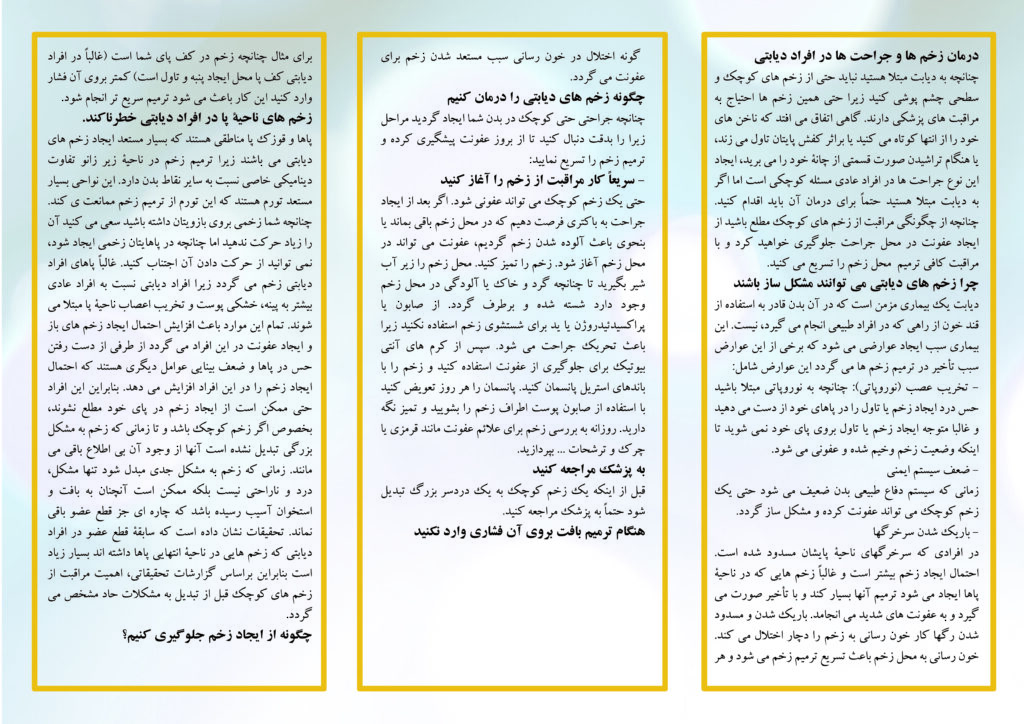 درمان زخم ها و جراحت ها در افراد دیابتی
چنانچه به دیابت مبتلا هستید نباید حتی از زخم های کوچک و
سطحی چشم پوشی کنید زیرا حتی همین زخم ها احتیاج به
مراقبت های پزشکی دارند. گاهی اتفاق می افتد که ناخن های
خود را از انتها کوتاه می کنید یا براثر کفش پایتان تاول می زند،
یا هنگام تراشیدن صورت قسمتی از چانۀ خود را می برید، ایجاد
این نوع جراحت ها در افراد عادی مسئله کوچکی است اما اگر
به دیابت مبتلا هستید حتماً برای درمان آن باید اقدام کنید.
چنانچه از چگونگی مراقبت از زخم های کوچک مطلع باشید از
ایجاد عفونت در محل جراحت جلوگیری خواهید کرد و با
مراقبت کافی ترمیم محل زخم را تسریع می کنید.
چرا زخم های دیابتی می توانند مشکل ساز باشند
دیابت یک بیماری مزمن است که در آن بدن قادر به استفاده از
قند خون از راهی که در افراد طبیعی انجام می گیرد، نیست. این
بیماری سبب ایجاد عوارضی می شود که برخی از این عوارض
سبب تأخیر در ترمیم زخم ها می گردد این عوارض شامل:
- تخریب عصب (نوروپاتی): چنانچه به نوروپاتی مبتلا باشید
حس درد ایجاد زخم یا تاول را در پاهای خود از دست می دهید
و غالبا متوجه ایجاد زخم یا تاول بروی پای خود نمی شوید تا
اینکه وضعیت زخم وخیم شده و عفونی می شود.
- ضعف سیستم ایمنی
زمانی که سیستم دفاع طبیعی بدن ضعیف می شود حتی یک
زخم کوچک می تواند عفونت کرده و مشکل ساز گردد.
- باریک شدن سرخرگها
در افرادی که سرخرگهای ناحیۀ پایشان مسدود شده است.
احتمال ایجاد زخم بیشتر است و غالباً زخم هایی که در ناحیۀ
پاها ایجاد می شود ترمیم آنها بسیار کند و با تأخیر صورت می
گیرد و به عفونت های شدید می انجامد. باریک شدن و مسدود
شدن رگها کار خون رسانی به زخم را دچار اختلال می کند.
خون رسانی به محل زخم باعث تسریع ترمیم زخم می شود و هر
گونه اختلال در خون رسانی سبب مستعد شدن زخم برای
عفونت می گردد.
چگونه زخم های دیابتی را درمان کنیم
چنانچه جراحتی حتی کوچک در بدن شما ایجاد گردید مراحل
زیرا را بدقت دنبال کنید تا از بروز عفونت پیشگیری کرده و
ترمیم زخم را تسریع نمایید:
- سریعاً کار مراقبت از زخم را آغاز کنید
حتی یک زخم کوچک می تواند عفونی شود. اگر بعد از ایجاد
جراحت به باکتری فرصت دهیم که در محل زخم باقی بماند یا
بنحوی باعث آلوده شدن زخم گردیم، عفونت می تواند در
محل زخم آغاز شود. زخم را تمیز کنید. محل زخم را زیر آب
شیر بگیرید تا چنانچه گرد و خاک یا آلودگی در محل زخم
وجود دارد شسته شده و برطرف گردد. از صابون یا
پراکسیدئیدروژن یا ید برای شستشوی زخم استفاده نکنید زیرا
باعث تحریک جراحت می شود. سپس از کرم های آنتی
بیوتیک برای جلوگیری از عفونت استفاده کنید و زخم را با
باندهای استریل پانسمان کنید. پانسمان را هر روز تعویض کنید
با استفاده از صابون پوست اطراف زخم را بشویید و تمیز نگه
دارید. روزانه به بررسی زخم برای علائم عفونت مانند قرمزی یا
چرک و ترشحات ... بپردازید.
به پزشک مراجعه کنید
قبل از اینکه یک زخم کوچک به یک دردسر بزرگ تبدیل
شود حتماً به پزشک مراجعه کنید.
هنگام ترمیم بافت بروی آن فشاری وارد نکنید
برای مثال چنانچه زخم در کف پای شما است (غالباً در افراد
دیابتی کف پا محل ایجاد پنبه و تاول است) کمتر بروی آن فشار
وارد کنید این کار باعث می شود ترمیم سریع تر انجام شود.
زخم های ناحیۀ پا در افراد دیابتی خطرناکند.
پاها و قوزک پا مناطقی هستند که بسیار مستعد ایجاد زخم های
دیابتی می باشند زیرا ترمیم زخم در ناحیۀ زیر زانو تفاوت
دینامیکی خاصی نسبت به سایر نقاط بدن دارد. این نواحی بسیار
مستعد تورم هستند که این تورم از ترمیم زخم ممانعت ی کند.
چنانچه شما زخمی بروی بازویتان داشته باشید سعی می کنید آن
را زیاد حرکت ندهید اما چنانچه در پاهایتان زخمی ایجاد شود،
نمی توانید از حرکت دادن آن اجتناب کنید. غالباً پاهای افراد
دیابتی زخم می گردد زیرا افراد دیابتی نسبت به افراد عادی
بیشتر به پینه، خشکی پوست و تخریب اعصاب ناحیۀ پا مبتلا می
شوند. تمام این موارد باعث افزایش احتمال ایجاد زخم های باز
و ایجاد عفونت در این افراد می گردد از طرفی از دست رفتن
حس در پاها و ضعف بینایی عوامل دیگری هستند که احتمال
ایجاد زخم را در این افراد افزایش می دهد. بنابراین این افراد
حتی ممکن است از ایجاد زخم در پای خود مطلع نشوند،
بخصوص اگر زخم کوچک باشد و تا زمانی که زخم به مشکل
بزرگی تبدیل نشده است آنها از وجود آن بی اطلاع باقی می
مانند. زمانی که زخم به مشکل جدی مبدل شود تنها مشکل،
درد و ناراحتی نیست بلکه ممکن است آنچنان به بافت و
استخوان آسیب رسیده باشد که چاره ای جز قطع عضو باقی
نماند. تحقیقات نشان داده است که سابقۀ قطع عضو در افراد
دیابتی که زخم هایی در ناحیۀ انتهایی پاها داشته اند بسیار زیاد
است بنابراین براساس گزارشات تحقیقاتی، اهمیت مراقبت از
زخم های کوچک قبل از تبدیل به مشکلات حاد مشخص می
گردد.
چگونه از ایجاد زخم جلوگیری کنیم؟